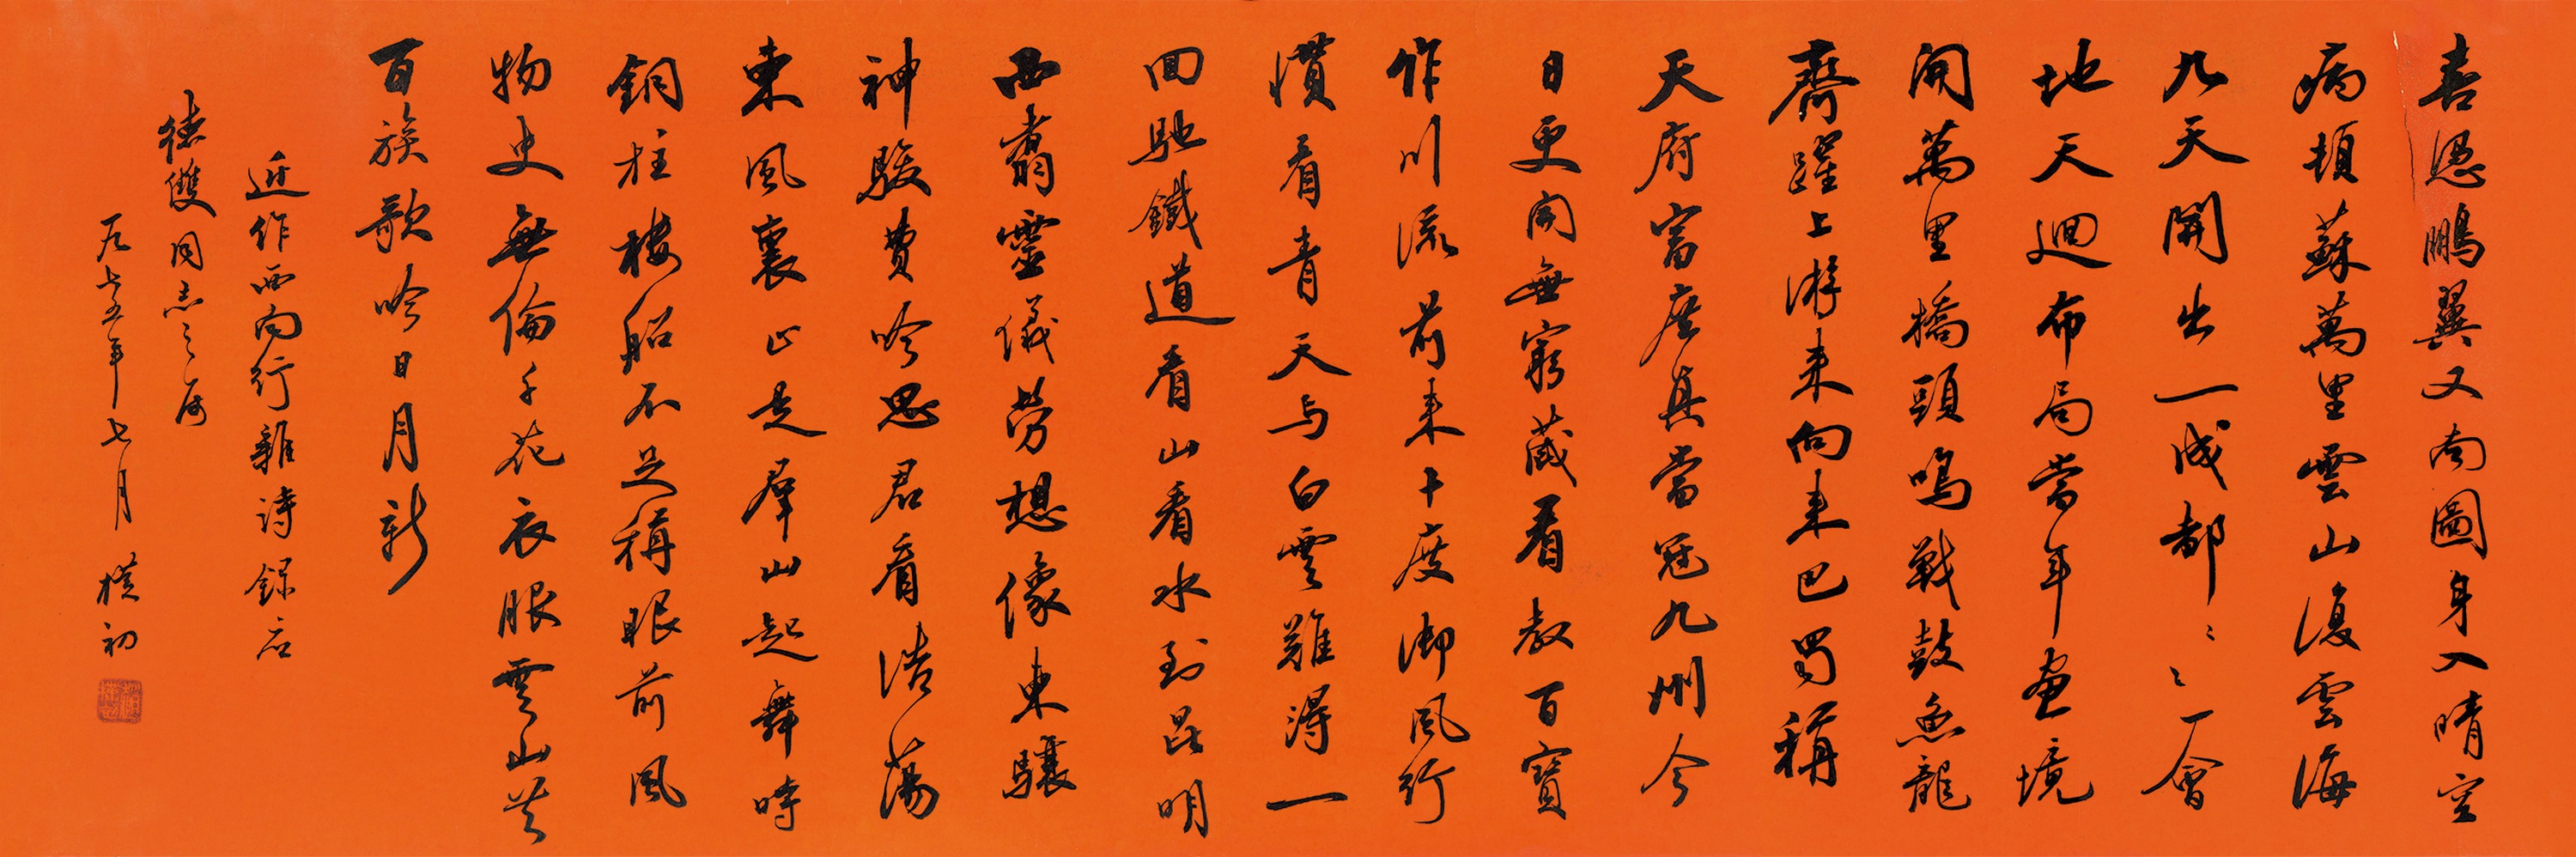 喜憑鵬翼又南圖身入晴空
病頓蘇萬里雲山復雲海
九天開出一成都〻〻一會
地天迴布局當年畫境
開萬里橋頭鳴戰鼓魚龍
齊躍上游來向來巴蜀稱
天府富庶真當冠九州今
日更開無窮藏看教百寶
作川流前來十度御風行
慣看青天与白雲難得一
回馳鐵道看山看水到昆明
西翥靈儀勞想像東驤
神駿費吟思君看浩蕩
東風裏正是群山起舞時
銅柱樓船不足稱眼前風
物史無倫千花衣服雲山共
百族歌吟日月新
近作西南行雜詩錄應
德雙同志之屬
一九七五年七月 樸初